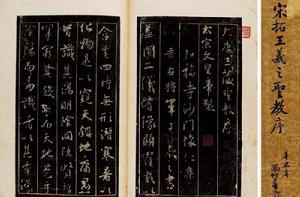 宋拓王羲之聖教序
大唐三藏聖教序
太宗文皇帝製
弘福寺沙門懷仁集
晉右將軍王羲之書
蓋聞二儀有像顯覆載以
含生四時無形潛寒暑以
化物是以窺天鑑地庸愚
皆識其端明陰洞陽賢哲
罕窮其數然而天地苞乎
陰陽而易識者以其有像